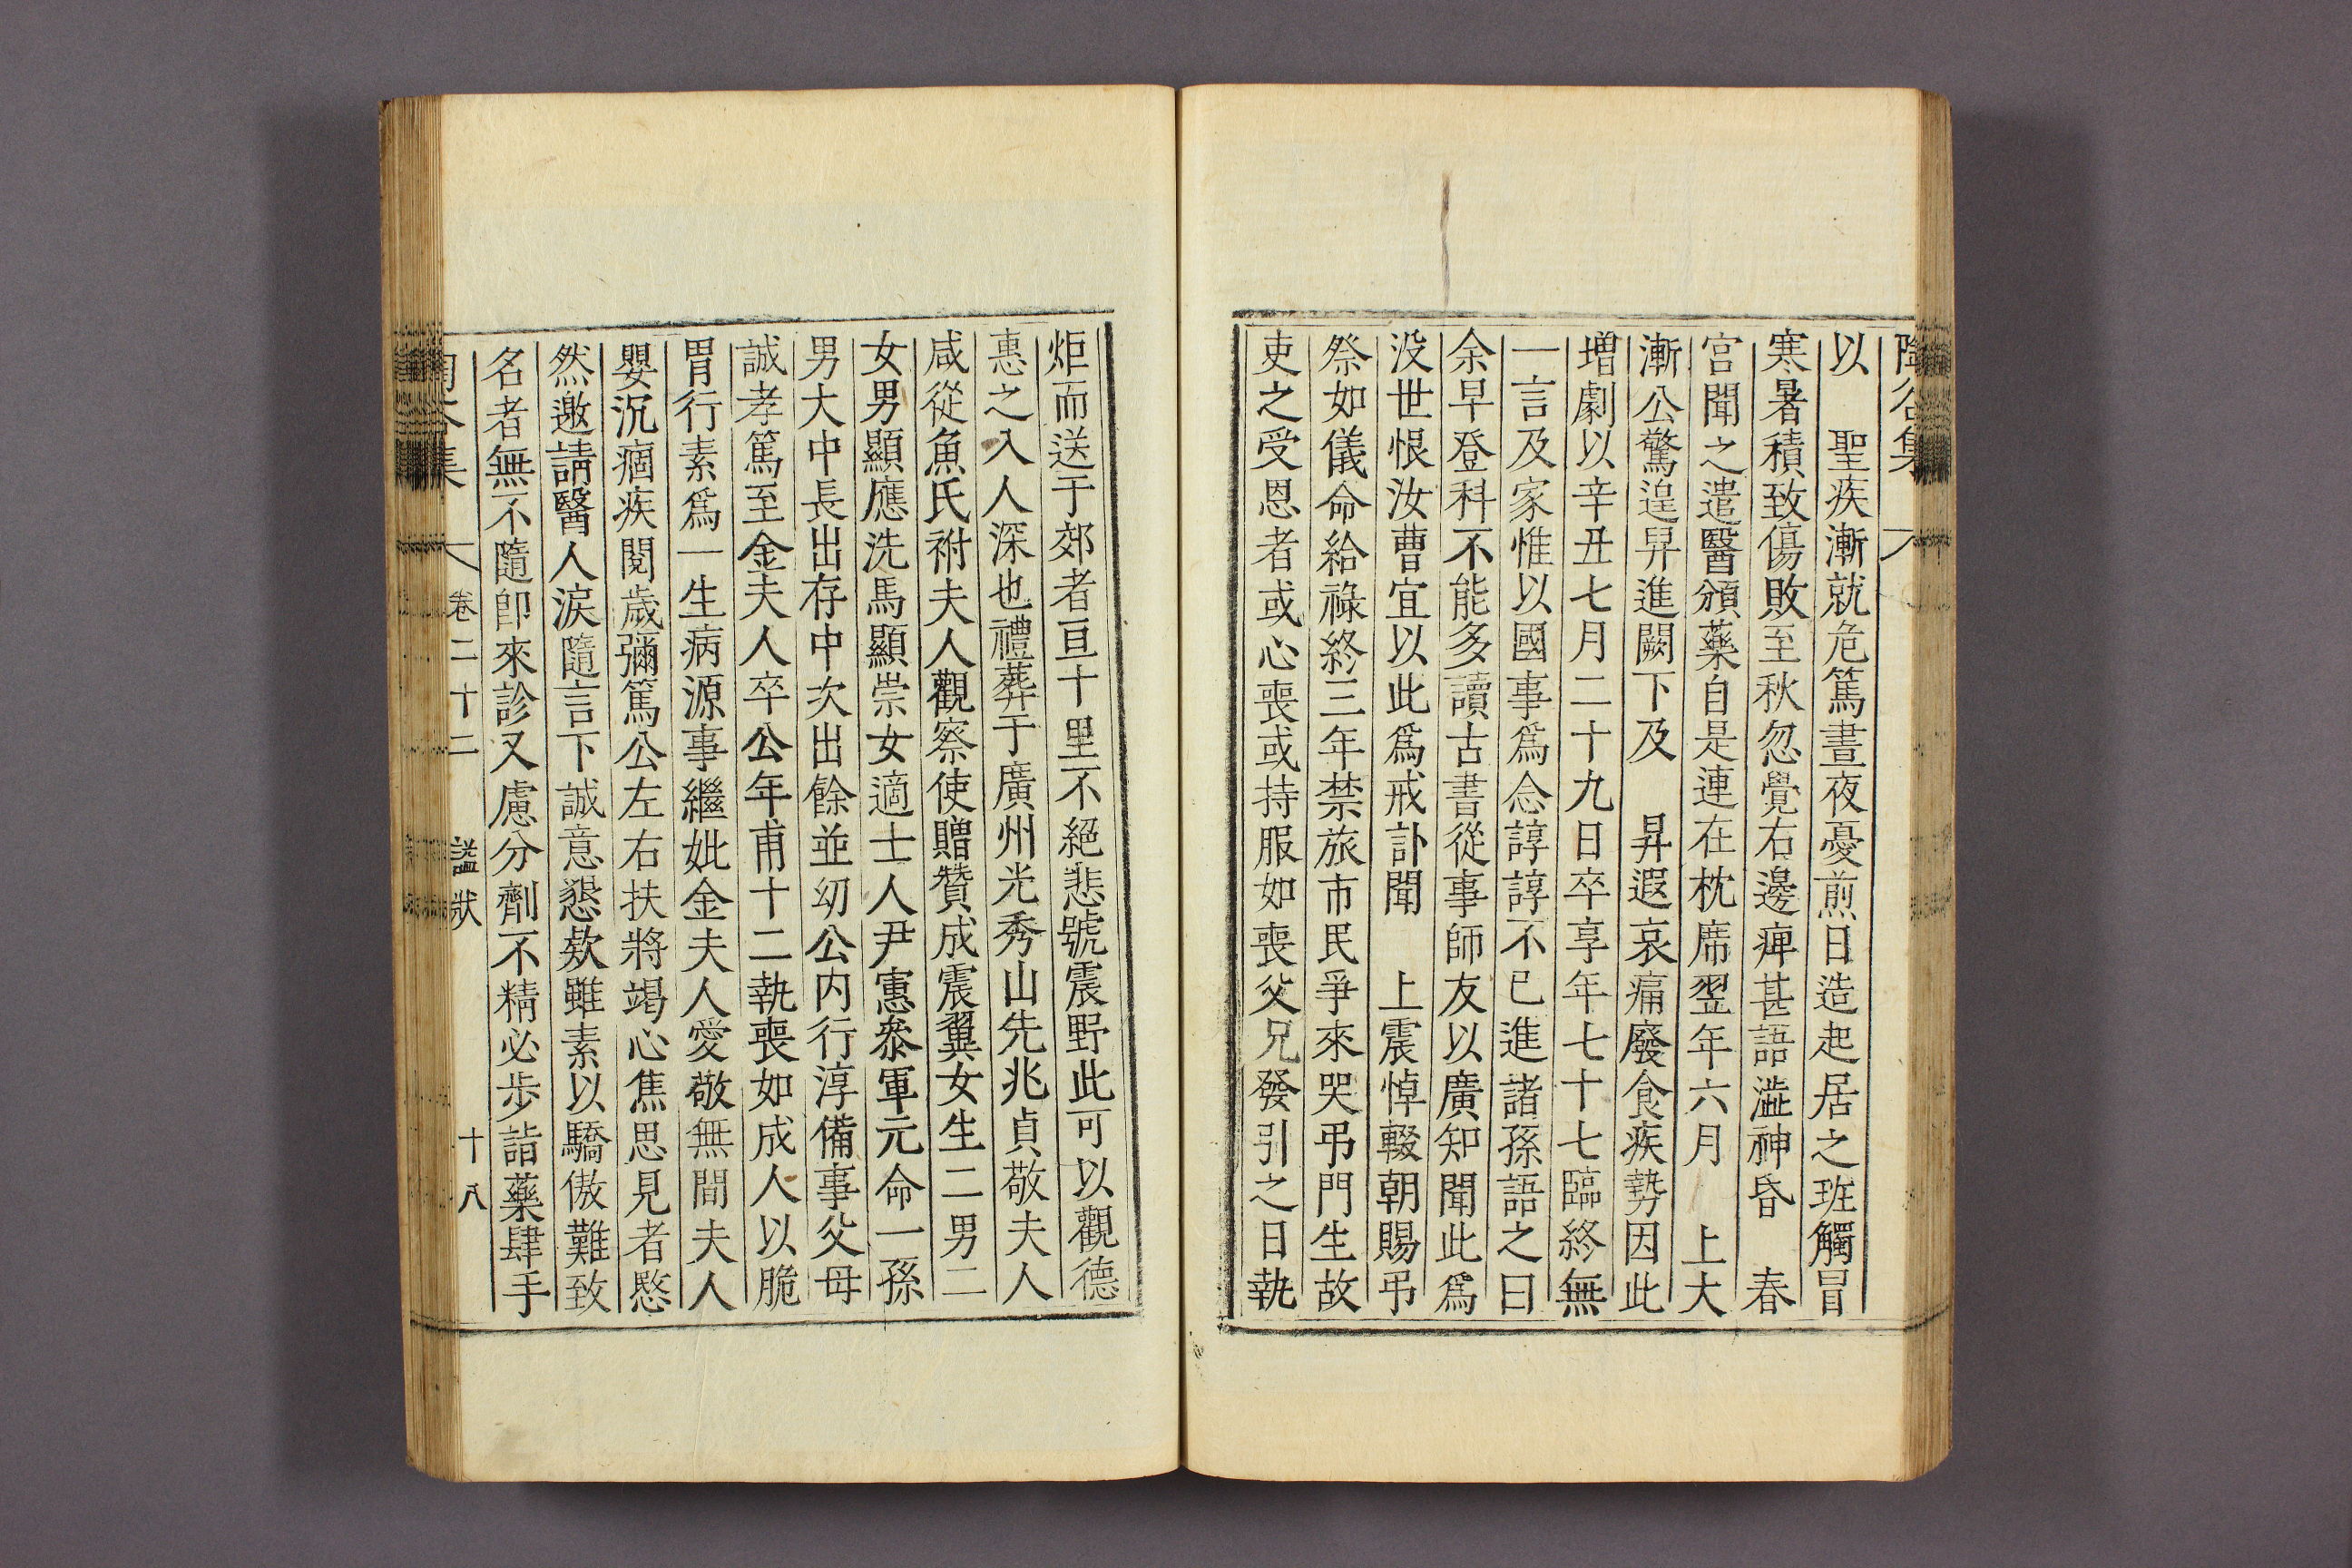 陶谷集
以　聖疾漸就危篤晝夜憂煎日造起居之班觸冒
寒暑積致傷敗至秋忽覺右邊痺甚語澁神昏　春
宮聞之遣醫頒藥自是連在枕席翌年六月　上大
漸公驚遑舁進闕下及　昇遐哀痛廢食疾勢因此
增劇以辛丑七月二十九日卒享年七十七臨終無
一言及家惟以國事爲念諄諄不已進諸孫語之曰
余早登科不能多讀古書從事師友以廣知聞此爲
沒世恨汝曹宜以此爲戒訃聞　上震悼輟朝賜弔
祭如儀命給祿終三年禁旅市民爭來哭弔門生故
吏之受恩者或心喪或持服如喪父兄發引之日執
炬而送于郊者亘十里不絕悲號震野此可以觀德
惠之入人深也禮葬于廣州光秀山先兆貞敬夫人
咸從魚氏祔夫人觀察使贈贊成震翼女生二男二
女男顯應洗馬顯崇女適士人尹憲叅軍元命一孫
男大中長出存中次出餘並幼公內行淳備事父母
誠孝篤至金夫人卒公年甫十二執喪如成人以脆
胃行素爲一生病源事繼妣金夫人愛敬無間夫人
嬰沉痼疾閱歲彌篤公左右扶將竭心焦思見者愍
然邀請醫人淚隨言下誠意懇欵雖素以驕傲難致
名者無不隨卽來診又慮分劑不精必步詣藥肆手
陶谷集　卷二十二　諡狀　十八